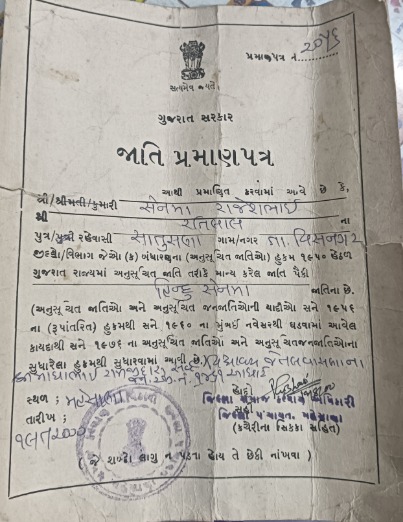 પ્રમાણપત્ર નં. ૨૦૫૬
સત્યમેવ જયતે
ગુજરાત સરકાર
જાતિ પ્રમાણપત્ર
આથી પ્રમાણિત કરવામાં આવે છે કે,
શ્રી/શ્રીમતી/કુમારી સેનમા રાજેશભાઈ
શ્રી રતિલાલ ના
પુત્ર/પુત્રી રહેવાસી સાતુસણા ગામ/નગર તા. વિસનગર
જીલ્લો/વિભાગ જેઓ (ક) બંધારણના (અનુસૂચિત જાતિઓ) હુકમ ૧૯૫૦ હેઠળ
ગુજરાત રાજ્યમાં અનુસૂચિત જાતિ તરીકે માન્ય કરેલ જાતિ પૈકી
હિન્દુ સેનમા જાતિના છે.
(અનુસૂચિત જાતિઓ અને અનુસૂચિત જનજાતિઓની યાદીઓ સને ૧૯૫૬
ના (રૂપાંતરિત) હુકમથી સને ૧૯૬૦ ના મુંબઈ નવેસરથી ઘડવામાં આવેલ
કાયદાથી સને ૧૯૭૬ ના અનુસૂચિત જાતિઓ અને અનુસૂચિત જનજાતિઓના
સુધારેલા હુકમથી સુધારવામાં આવી છે.)
સ્થળ : મહેસાણા
જિલ્લા સમાજ કલ્યાણ અધિકારી
તારીખ :
જિલ્લા પંચાયત, મહેસાણા
(કચેરીના સિક્કા સહિત)
( જે શબ્દો લાગુ ન પડતા હોય તે છેકી નાંખવા )